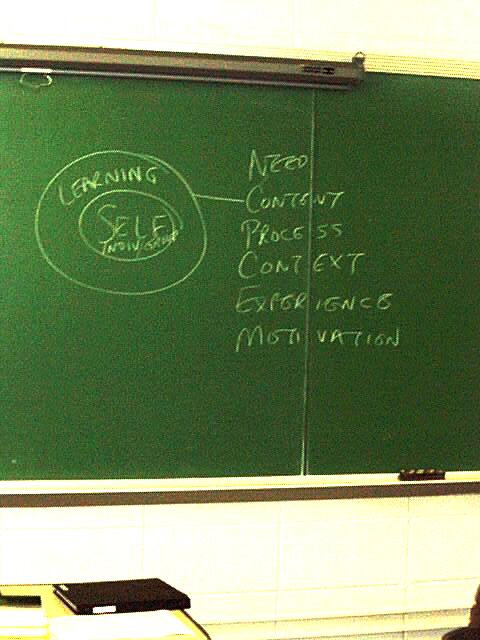 LEARNING
SELF
INDIV/GROUP
NEED
CONTENT
PROCESS
CONTEXT
EXPERIENCE
MOTIVATION